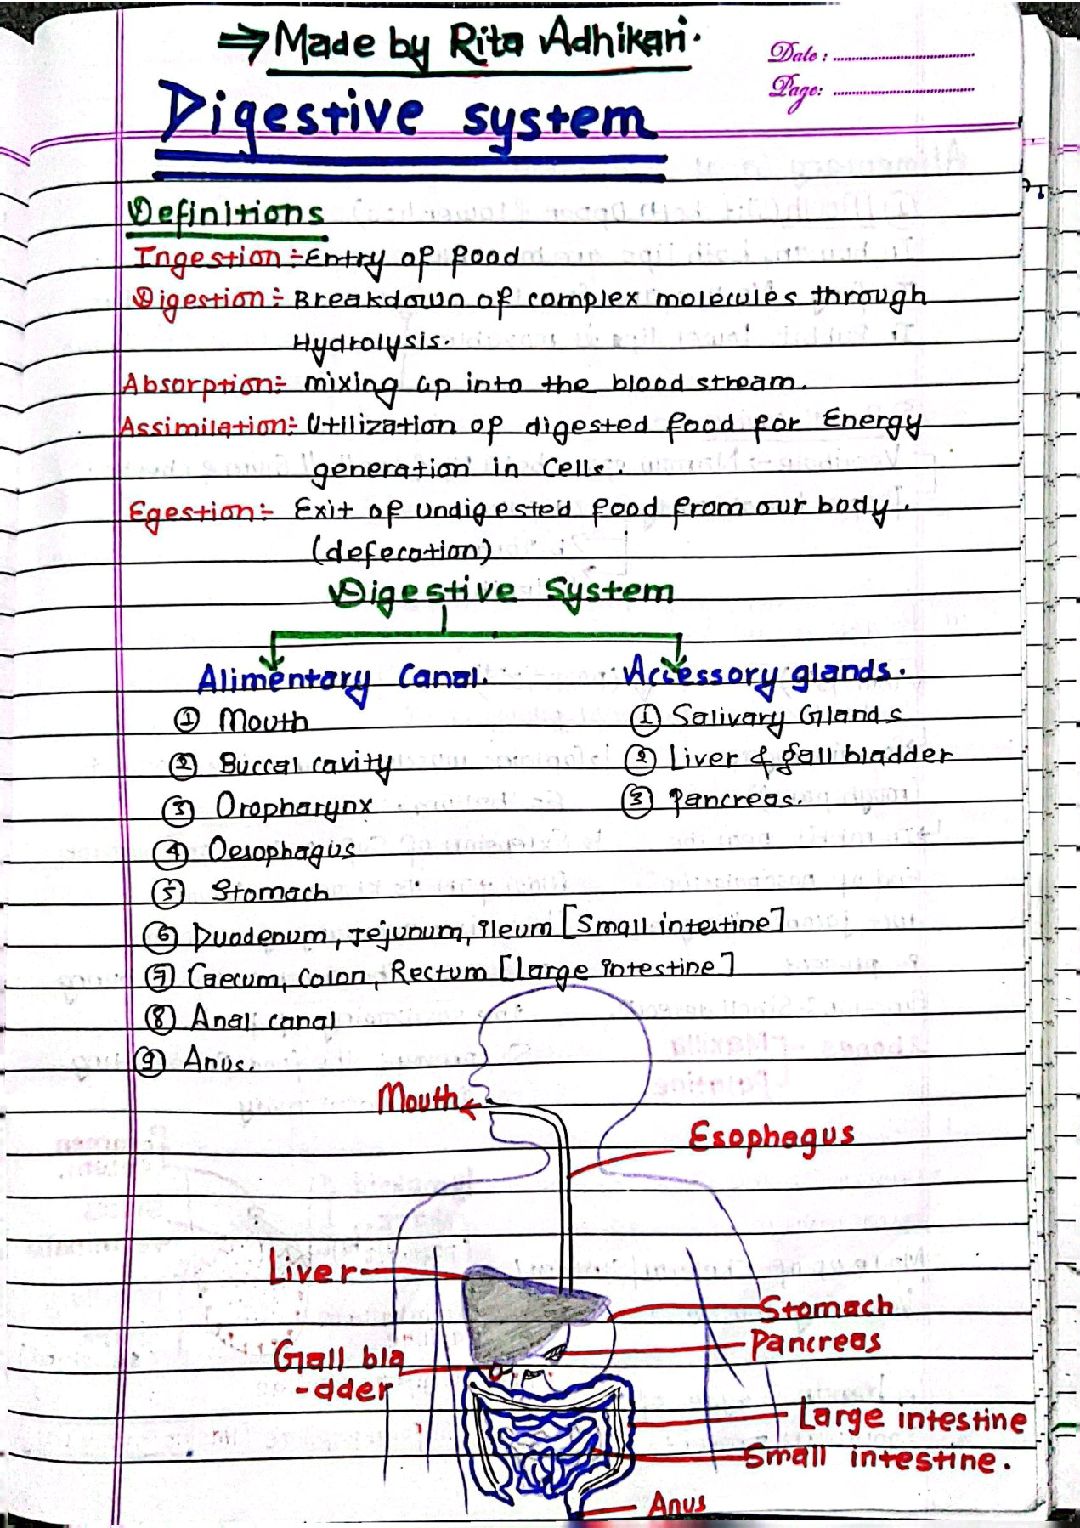 ⇒ Made by Rita Adhikari.
Date :
Page:
Digestive system
Definitions
Ingestion :- Entry of food
Digestion :- Breakdown of complex molecules through
Hydrolysis.
Absorption:- mixing up into the blood stream.
Assimilation:- Utilization of digested food for Energy
generation in Cells.
Egestion:- Exit of undigested food from our body.
(defecation)
Digestive System
Alimentary Canal.
① Mouth
② Buccal cavity
③ Oropharynx
④ Oesophagus
⑤ Stomach
⑥ Duodenum, Jejunum, ileum [Small intestine]
⑦ Caecum, Colon, Rectum [large intestine]
⑧ Anal canal
⑨ Anus.
Accessory glands.
① Salivary Glands
② Liver & gall bladder
③ Pancreas.
Mouth
Esophagus
Liver
Stomach
Pancreas
Gall bla
-dder
Large intestine
Small intestine.
Anus